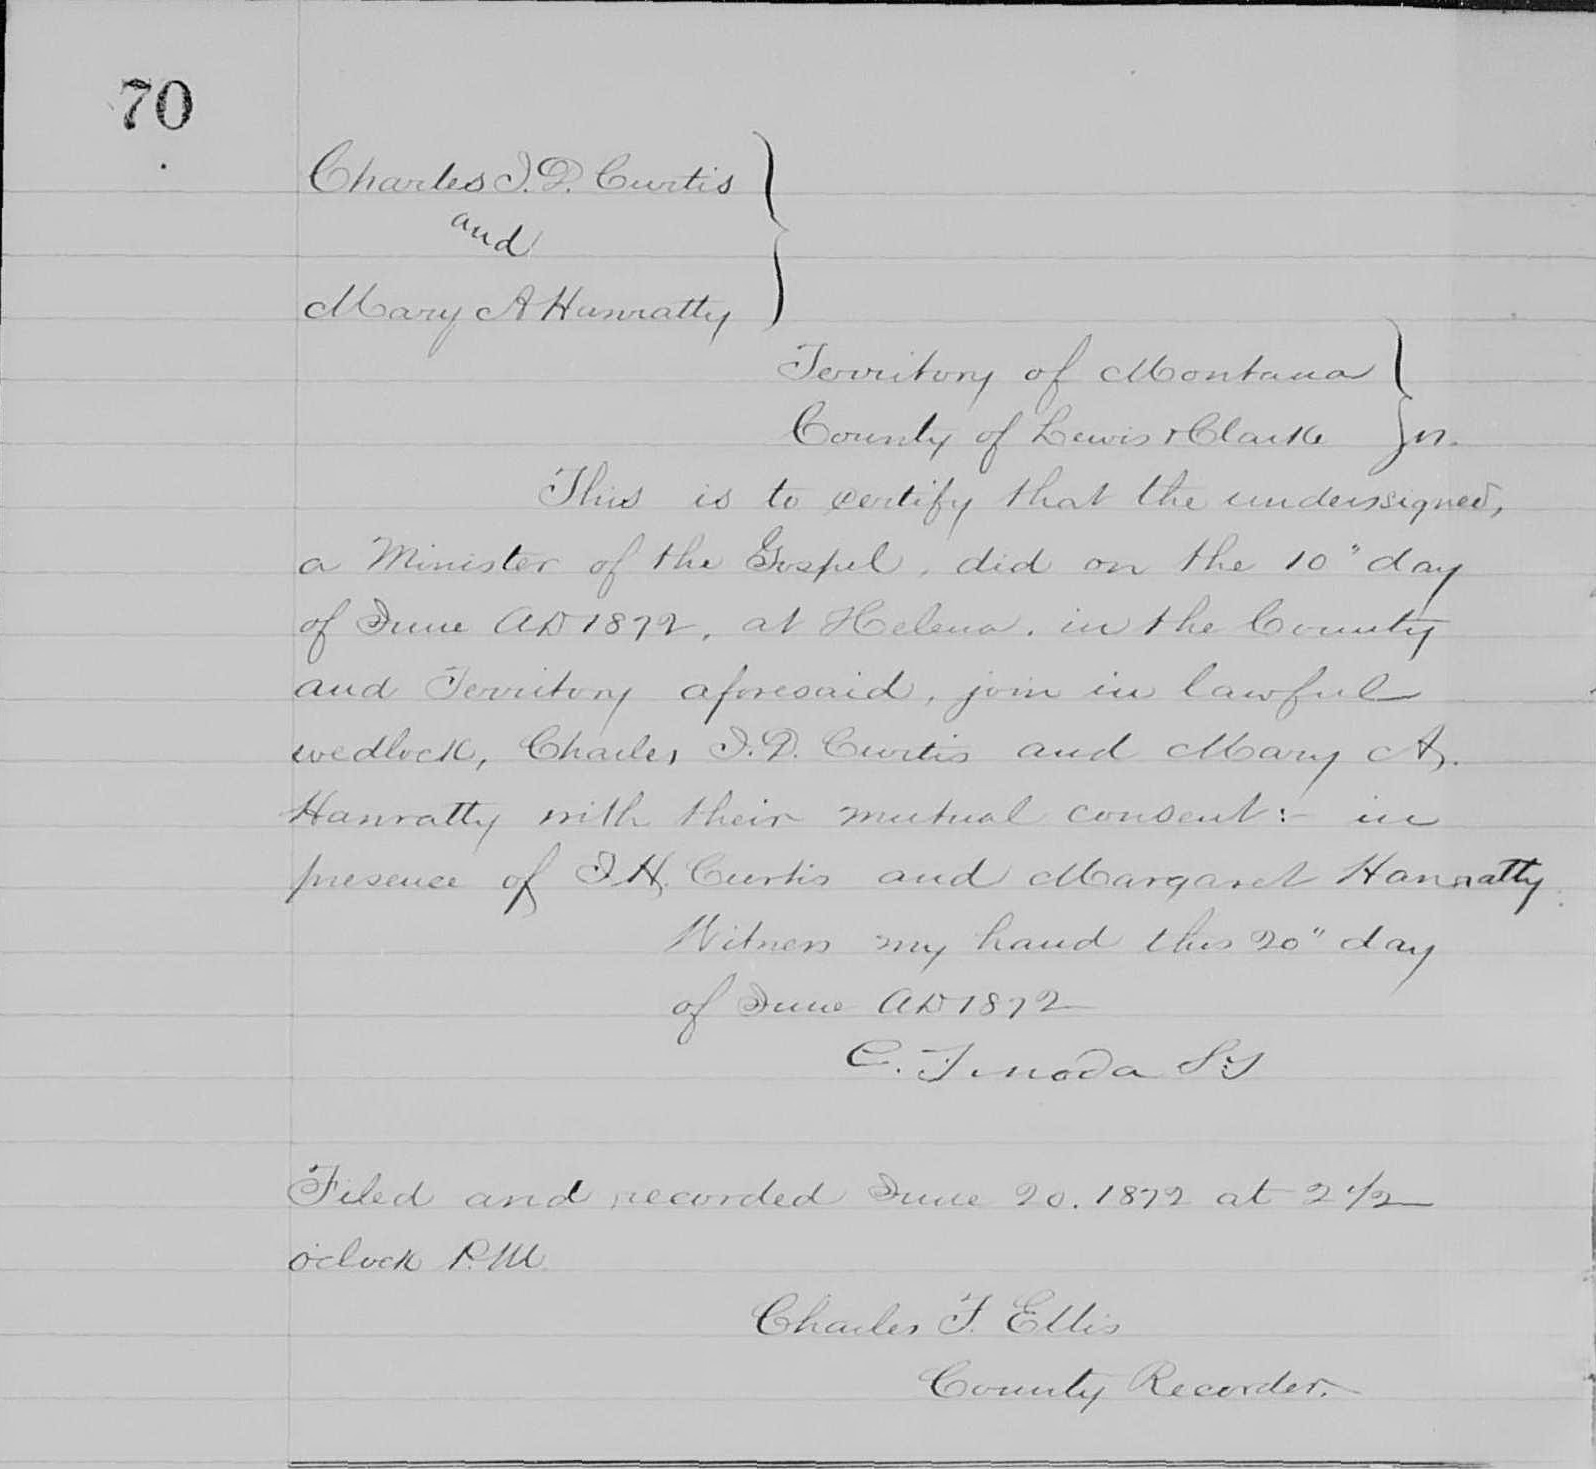 70
Charles J. D. Curtis
and
Mary A Hanratty
Territory of Montana
County of Lewis & Clarke } ss.
This is to certify that the underssigned,
a Minister of the Gospel, did on the 10" day
of June AD 1872, at Helena, in the County
and Territory aforesaid, join in lawful
wedlock, Charles J. D. Curtis and Mary A.
Hanratty with their mutual consent:- in
presence of J. H. Curtis and Margaret Hanratty.
Witness my hand this 20" day
of June AD 1872
C. S.J
Filed and recorded June 20. 1872 at 2 1/2
o'clock P.M.
Charles F. Ellis
County Recorder.